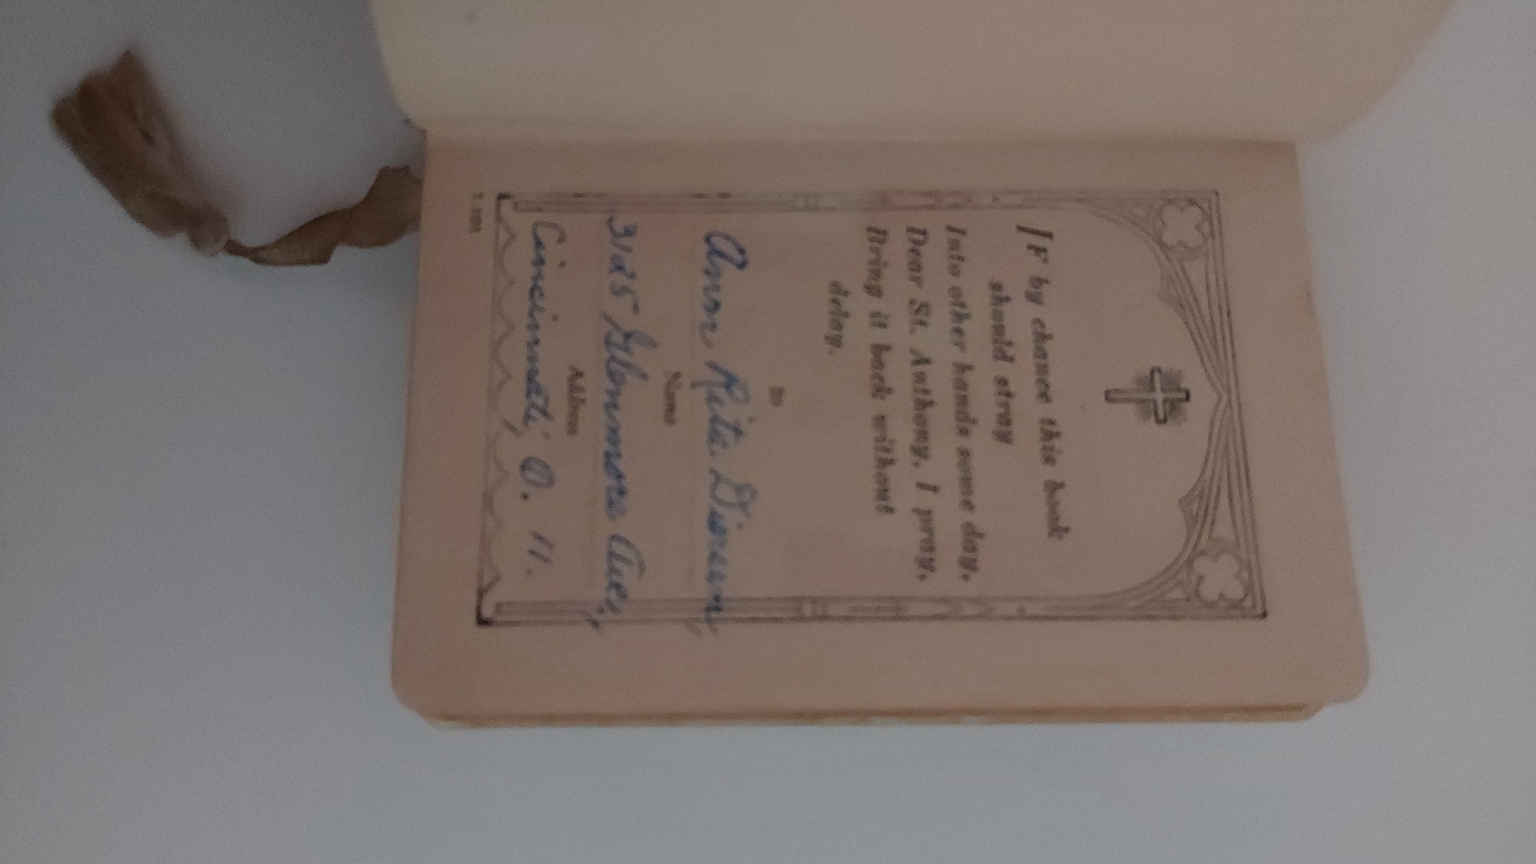 IF by chance this book
should stray
Into other hands some day,
Dear St. Anthony, I pray,
Bring it back without
delay.
TO
Ann Rita
Name
3125 Glenmore Ave.,
Address
Cincinnati, O. 11.